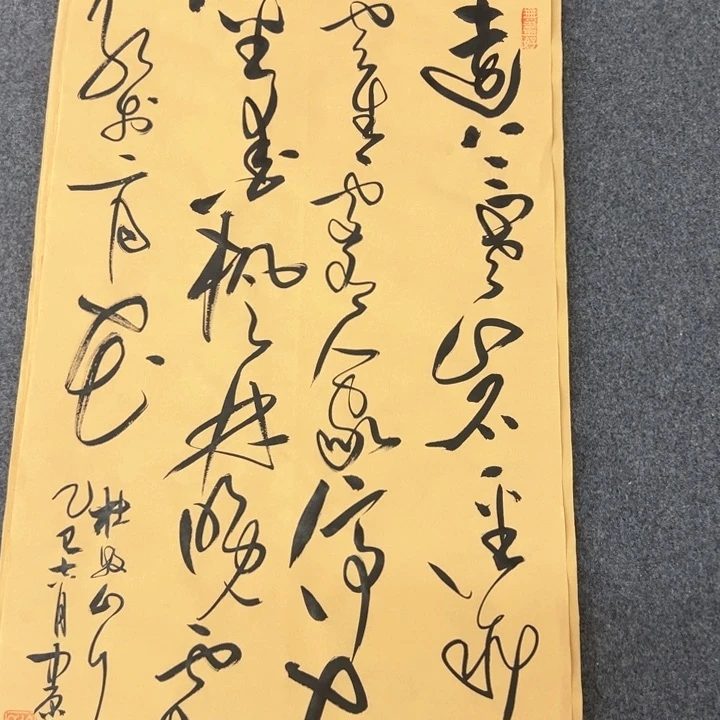 遠上寒山石徑斜
雲生處有人家停車
坐愛枫林晚霜
红於二月花
杜牧山行
乙巳六月